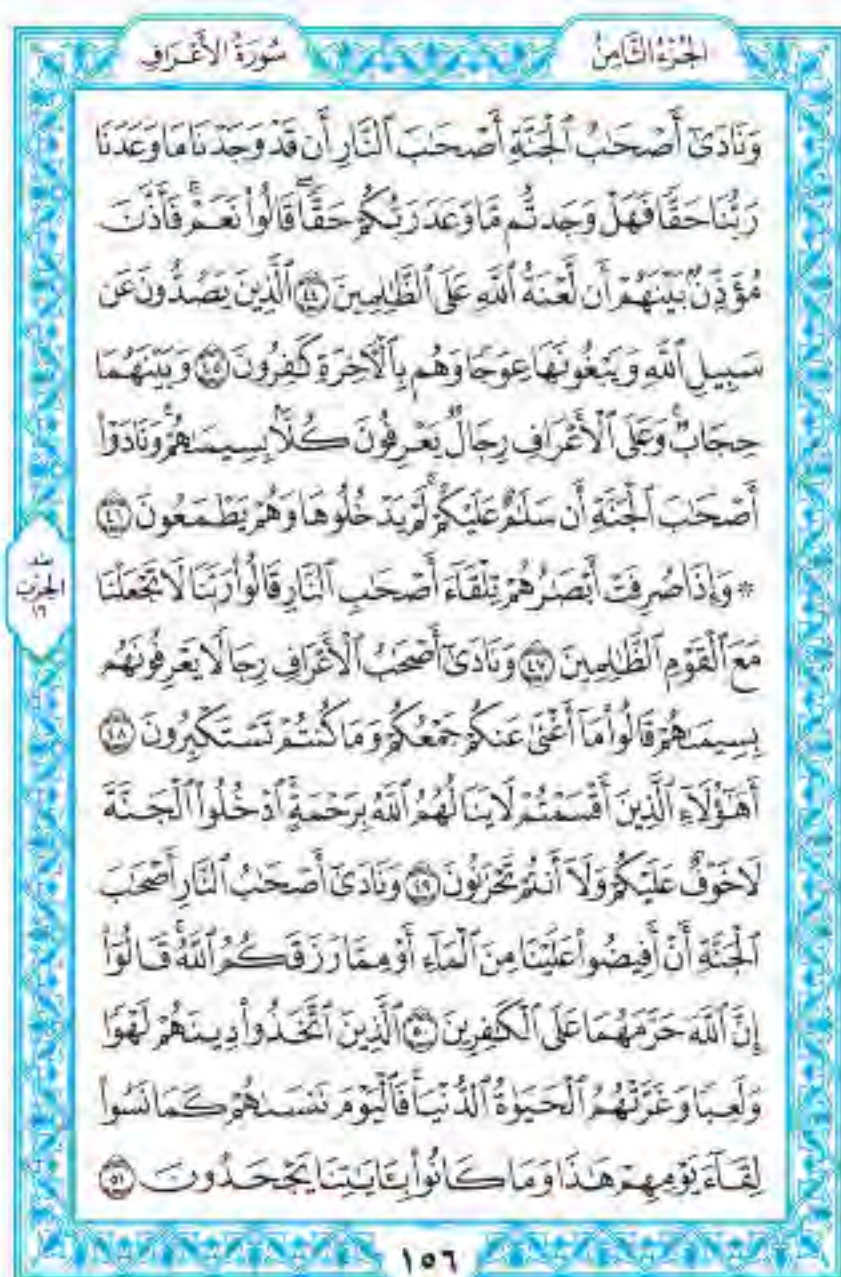 سُورَةُ الأَعْرَافِ
الجُزْءُ الثَّامِنُ
وَنَادَىٰٓ أَصْحَٰبُ ٱلْجَنَّةِ أَصْحَٰبَ ٱلنَّارِ أَن قَدْ وَجَدْنَا مَا وَعَدَنَا
رَبُّنَا حَقًّا فَهَلْ وَجَدتُّم مَّا وَعَدَ رَبُّكُمْ حَقًّا ۖ قَالُوا۟ نَعَمْ ۚ فَأَذَّنَ
مُؤَذِّنٌۢ بَيْنَهُمْ أَن لَّعْنَةُ ٱللَّهِ عَلَى ٱلظَّٰلِمِينَ ٤٤ ٱلَّذِينَ يَصُدُّونَ عَن
سَبِيلِ ٱللَّهِ وَيَبْغُونَهَا عِوَجًا وَهُم بِٱلْءَاخِرَةِ كَٰفِرُونَ ٤٥ وَبَيْنَهُمَا
حِجَابٌ ۚ وَعَلَى ٱلْأَعْرَافِ رِجَالٌ يَعْرِفُونَ كُلًّۢا بِسِيمَىٰهُمْ ۚ وَنَادَوْا۟
أَصْحَٰبَ ٱلْجَنَّةِ أَن سَلَٰمٌ عَلَيْكُمْ ۚ لَمْ يَدْخُلُوهَا وَهُمْ يَطْمَعُونَ ٤٦
۞ وَإِذَا صُرِفَتْ أَبْصَٰرُهُمْ تِلْقَآءَ أَصْحَٰبِ ٱلنَّارِ قَالُوا۟ رَبَّنَا لَا تَجْعَلْنَا
مَعَ ٱلْقَوْمِ ٱلظَّٰلِمِينَ ٤٧ وَنَادَىٰٓ أَصْحَٰبُ ٱلْأَعْرَافِ رِجَالًا يَعْرِفُونَهُم
بِسِيمَىٰهُمْ قَالُوا۟ مَآ أَغْنَىٰ عَنكُمْ جَمْعُكُمْ وَمَا كُنتُمْ تَسْتَكْبِرُونَ ٤٨
أَهَٰٓؤُلَآءِ ٱلَّذِينَ أَقْسَمْتُمْ لَا يَنَالُهُمُ ٱللَّهُ بِرَحْمَةٍ ۚ ٱدْخُلُوا۟ ٱلْجَنَّةَ
لَا خَوْفٌ عَلَيْكُمْ وَلَآ أَنتُمْ تَحْزَنُونَ ٤٩ وَنَادَىٰٓ أَصْحَٰبُ ٱلنَّارِ أَصْحَٰبَ
ٱلْجَنَّةِ أَنْ أَفِيضُوا۟ عَلَيْنَا مِنَ ٱلْمَآءِ أَوْ مِمَّا رَزَقَكُمُ ٱللَّهُ ۚ قَالُوٓا۟
إِنَّ ٱللَّهَ حَرَّمَهُمَا عَلَى ٱلْكَٰفِرِينَ ٥٠ ٱلَّذِينَ ٱتَّخَذُوا۟ دِينَهُمْ لَهْوًا
وَلَعِبًا وَغَرَّتْهُمُ ٱلْحَيَوٰةُ ٱلدُّنْيَا ۚ فَٱلْيَوْمَ نَنسَىٰهُمْ كَمَا نَسُوا۟
لِقَآءَ يَوْمِهِمْ هَٰذَا وَمَا كَانُوا۟ بِـَٔايَٰتِنَا يَجْحَدُونَ ٥١
الحِزْب
١٦
١٥٦